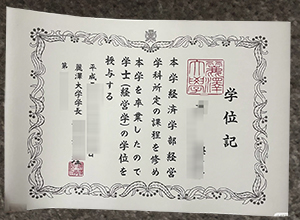 学位記
麗澤
大學
本学経済学部経営
学科所定の課程を修め
本学を卒業したので
学士（経営学）の学位を
授与する
平成
麗澤大学学長
第